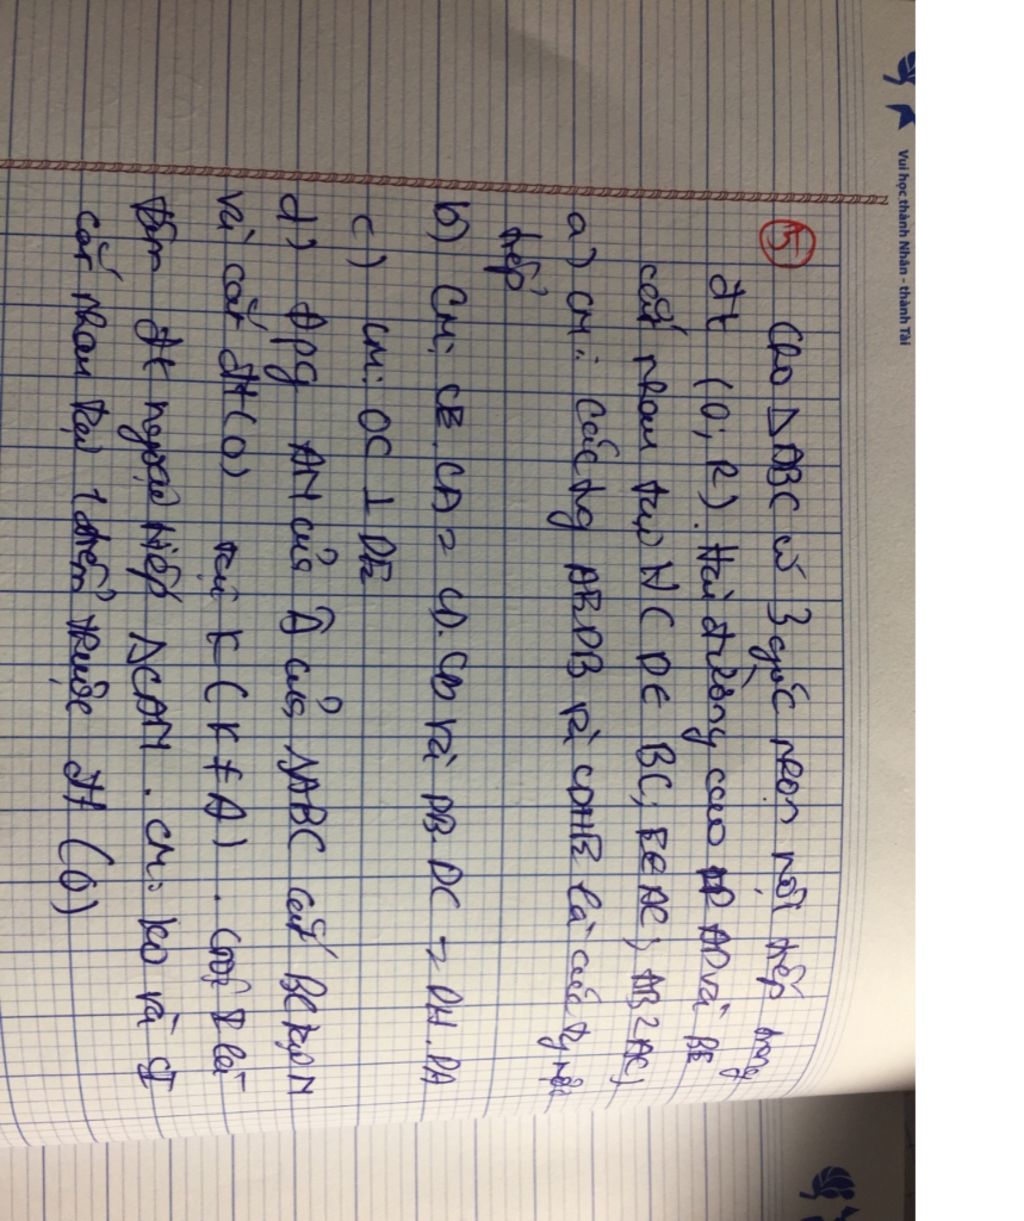 Vui học thành Nhân - thành Tài
5 Cho △ABC có 3 góc nhọn nội tiếp trong
đt (O; R). Hai đường cao AD và BE
cắt nhau tại H ( D∈ BC; E∈ AC; AB < AC)
a) CM: Các tg AEDB và CDHE là các tg nội
tiếp
b) CM: CE. CA = CD. CB và DB. DC = DH. DA
c) CM: OC ⊥ DE
d) Đpg AN của Â của △ABC cắt BC tại N
và cắt đt (O) tại K ( K ≠ A ). Gọi I là
tâm đt ngoại tiếp △CAN. CM: KO và CI
cắt nhau tại 1 điểm thuộc đt (O)